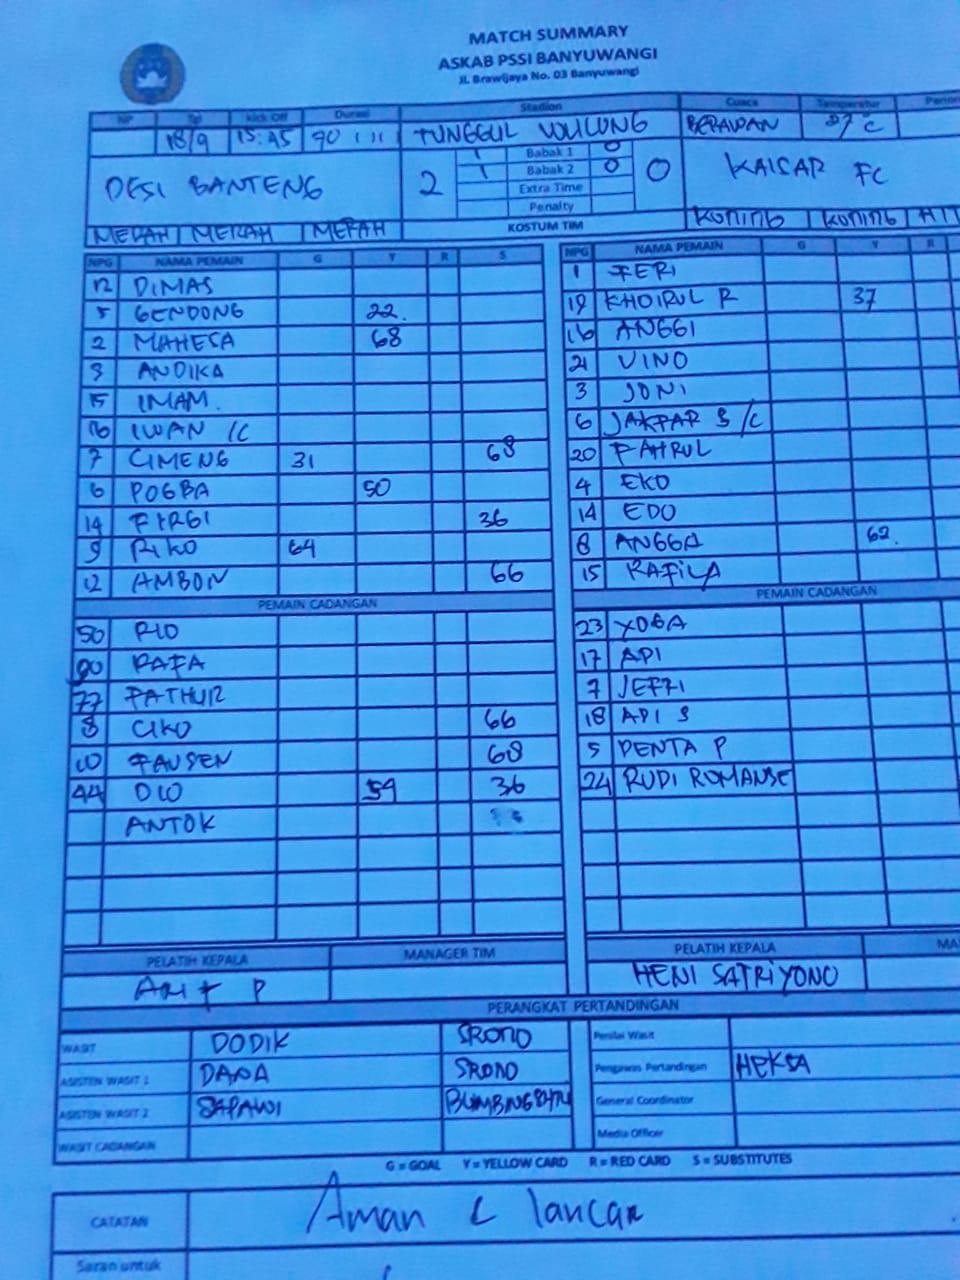 MATCH SUMMARY
ASKAB PSSI BANYUWANGI
Jl. Brawijaya No. 03 Banyuwangi
NP Tgl Kick Off Durasi Stadion Cuaca Temperatur
18/9 15:45 90 TUNGGUL WULUNG BERAWAN 27°C
DESI BANTENG 2 0 KAISAR FC
1 Babak 1 0
1 Babak 2 0
Extra Time
Penalty
MERAH MERAH MERAH KOSTUM TIM KUNING KUNING HIT
NPG NAMA PEMAIN G Y R S NPG NAMA PEMAIN G Y R
12 DIMAS 1 FERI
5 GENDONG 22. 19 KHOIRUL R 37
2 MAHESA 68 16 ANGGI
3 ANDIKA 21 VINO
15 IMAM. 3 JONI
16 IWAN /C 6 JAKFAR S /C
7 CIMENG 31 68 20 FAHRUL
6 POGBA 50 4 EKO
14 FIRGI 36 14 EDO
9 RIKO 64 8 ANGGA 62.
12 AMBON 66 15 RAFILA
PEMAIN CADANGAN PEMAIN CADANGAN
50 RIO 23 YOGA
90 RAFA 17 API
77 FATHUR 7 JEFRI
8 CIKO 66 18 API S
10 FAUSEN 68 5 DENTA P
44 DIO 59 36 24 RUDI ROMANSE
ANTOK
PELATIH KEPALA MANAGER TIM PELATIH KEPALA MA
ARIF P HENI SATRIYONO
PERANGKAT PERTANDINGAN
WASIT DODIK SRONO Penilai Wasit
ASISTEN WASIT 1 DANA SRONO Pengawas Pertandingan HEKSA
ASISTEN WASIT 2 SAPAWI General Coordinator
WASIT CADANGAN Media Officer
G = GOAL Y = YELLOW CARD R = RED CARD S = SUBSTITUTES
CATATAN Aman & lancar
Saran untuk